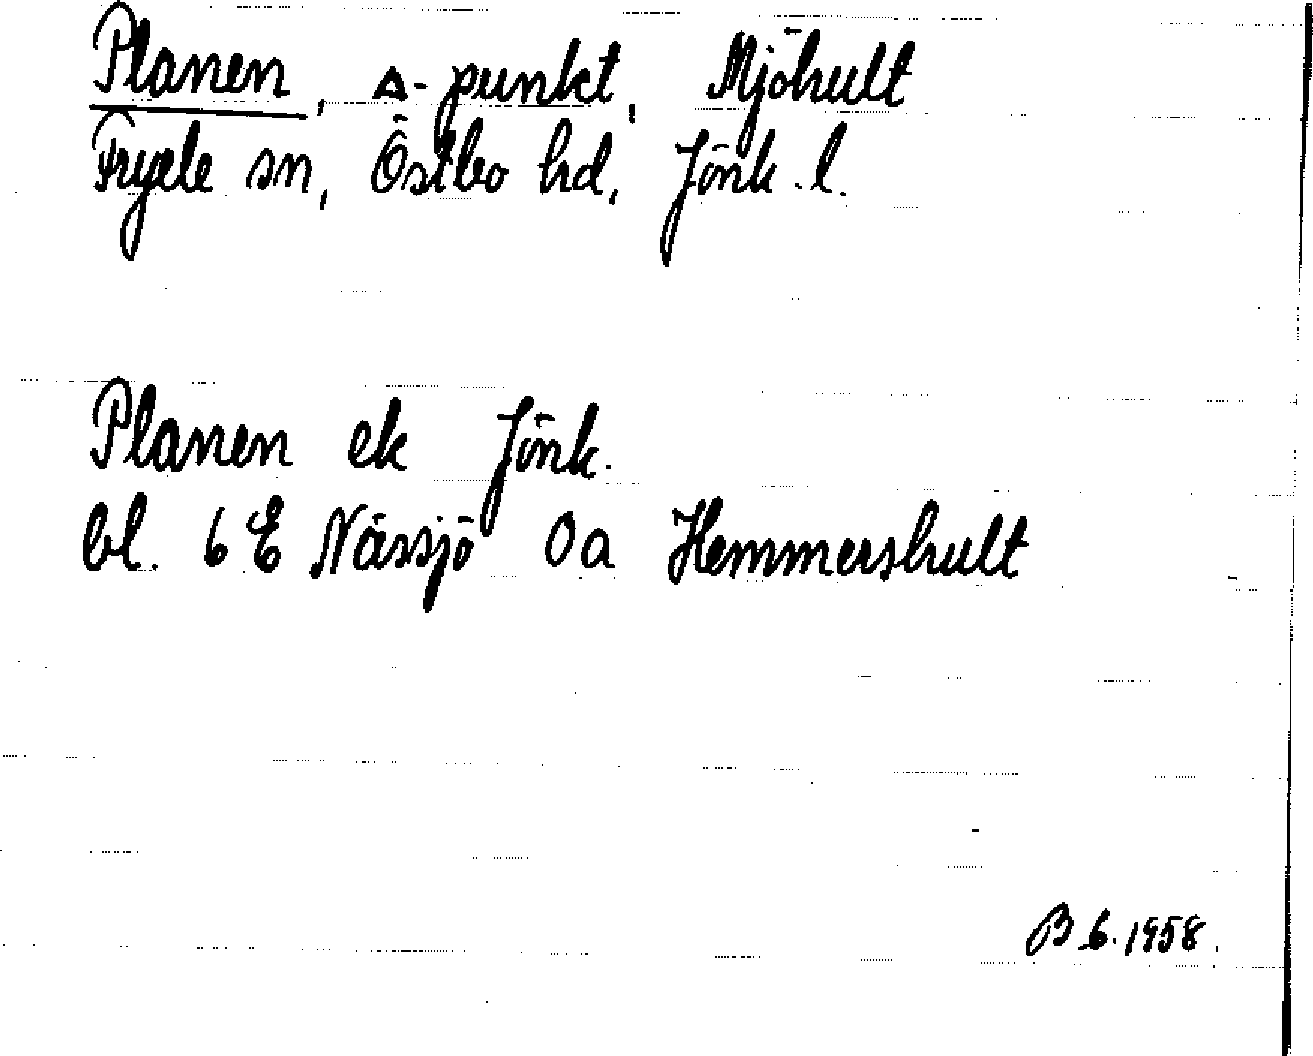 Planen, Δ-punkt, Mjöhult
Fryele sn, Östbo hd, Jönk. l.
Planen ek Jönk.
bl. 6E Nässjö 0a Hemmershult
B 6. 1958.